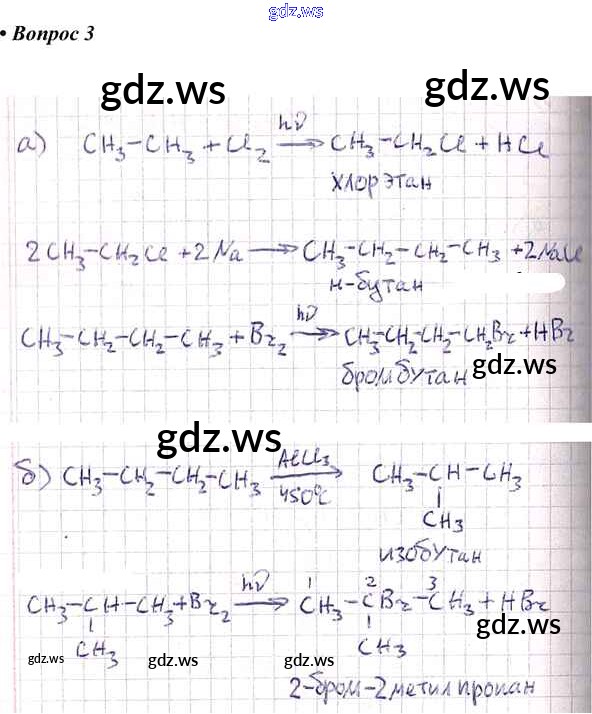 gdz.ws
• Вопрос 3
gdz.ws gdz.ws
а) CH₃-CH₃ + Cl₂ —hν→ CH₃-CH₂Cl + HCl
хлорэтан
2CH₃-CH₂Cl + 2Na → CH₃-CH₂-CH₂-CH₃ + 2NaCl
н-бутан
CH₃-CH₂-CH₂-CH₃ + Br₂ —hν→ CH₃-CH₂-CH₂-CH₂Br + HBr
бромбутан gdz.ws
gdz.ws
б) CH₃-CH₂-CH₂-CH₃ —AlCl₃ 450°C→ CH₃-CH-CH₃
CH₃
изобутан
1 2 3
CH₃-CH-CH₃ + Br₂ —hν→ CH₃-CBr-CH₃ + HBr
gdz.ws
CH₃ CH₃
gdz.ws gdz.ws gdz.ws
2-бром-2метилпропан